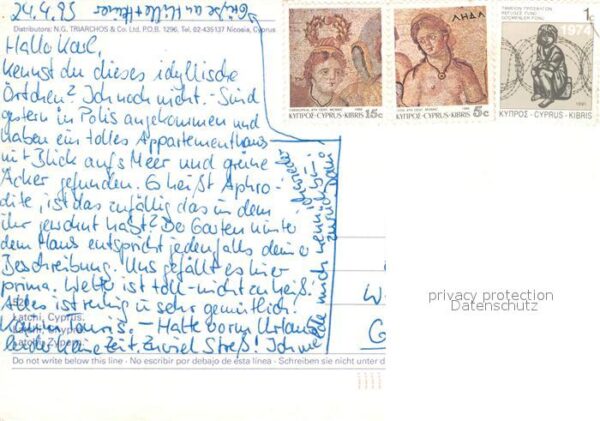 24.4.95
Grüße an Hille +
Distributors: N.G. TRIARCHOS & Co. Ltd, P.O.B. 1296, Tel. 02-435137 Nicosia, Cyprus
Hallo Karl,
kennst du dieses idyllische
Örtchen? Ich noch nicht. - Sind
gestern in Polis angekommen und
haben ein tolles Appartementhaus
mit Blick aufs Meer und grüne
Äcker gefunden. Es heißt Aphro-
dite, ist das zufällig das in dem
ihr gewohnt habt? Der Garten hinter
dem Haus entspricht jedenfalls deiner
Beschreibung. Uns gefällt es hier
prima. Wetter ist toll - nicht zu heiß.
Alles ist ruhig u. sehr gemütlich.
Kaum Touris. - Hatte vorm Urlaub
leider keine Zeit. Zuviel Streß! Ich melde mich wenn ich wieder
zurück bin!
Latchi, Cyprus.
Latchi, Zypern.
Do not write below this line - No escribir por debajo de esta línea - Schreiben sie nicht unter d
ΚΥΠΡΟΣ-CYPRUS-KIBRIS 15c
ΛΗΔΑ
ΚΥΠΡΟΣ-CYPRUS-KIBRIS 5c
ΤΑΜΕΙΟΝ ΠΡΟΣΦΥΓΩΝ
REFUGEE FUND
GÖÇMENLER FONU
1c
1974
1991
ΚΥΠΡΟΣ-CYPRUS-KIBRIS
W
G
privacy protection
Datenschutz